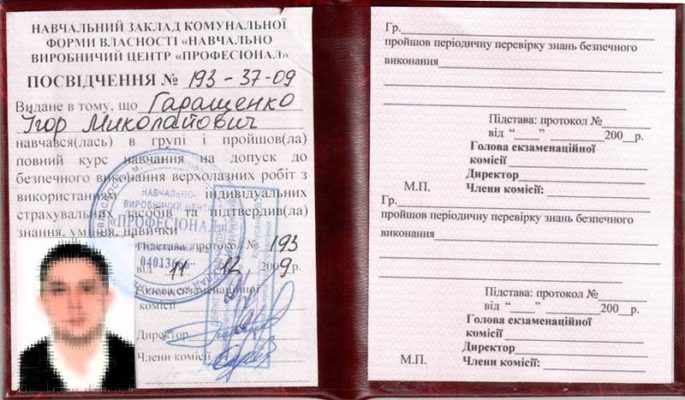 НАВЧАЛЬНИЙ ЗАКЛАД КОМУНАЛЬНОЇ
ФОРМИ ВЛАСНОСТІ «НАВЧАЛЬНО
ВИРОБНИЧИЙ ЦЕНТР «ПРОФЕСІОНАЛ»
ПОСВІДЧЕННЯ № 193-37-09
Видане в тому, що Гаращенко
Ігор Миколайович
навчався(лась) в групі і пройшов(ла)
повний курс навчання на допуск до
безпечного виконання верхолазних робіт з
використанням індивідуальних
страхувальних засобів та підтвердив(ла)
знання, уміння, навички
Підстава: протокол № 193
від 11 12 2009р.
Голова екзаменаційної
комісії
Директор
Члени комісії
НАВЧАЛЬНО-
ВИРОБНИЧИЙ ЦЕНТР
"ПРОФЕСІОНАЛ"
Гр.
пройшов періодичну перевірку знань безпечного
виконання
Підстава: протокол №
від "__" 200__р.
Голова екзаменаційної
комісії
Директор
М.П. Члени комісії:
Гр.
пройшов періодичну перевірку знань безпечного
виконання
Підстава: протокол №
від "__" 200__р.
Голова екзаменаційної
комісії
Директор
М.П. Члени комісії: